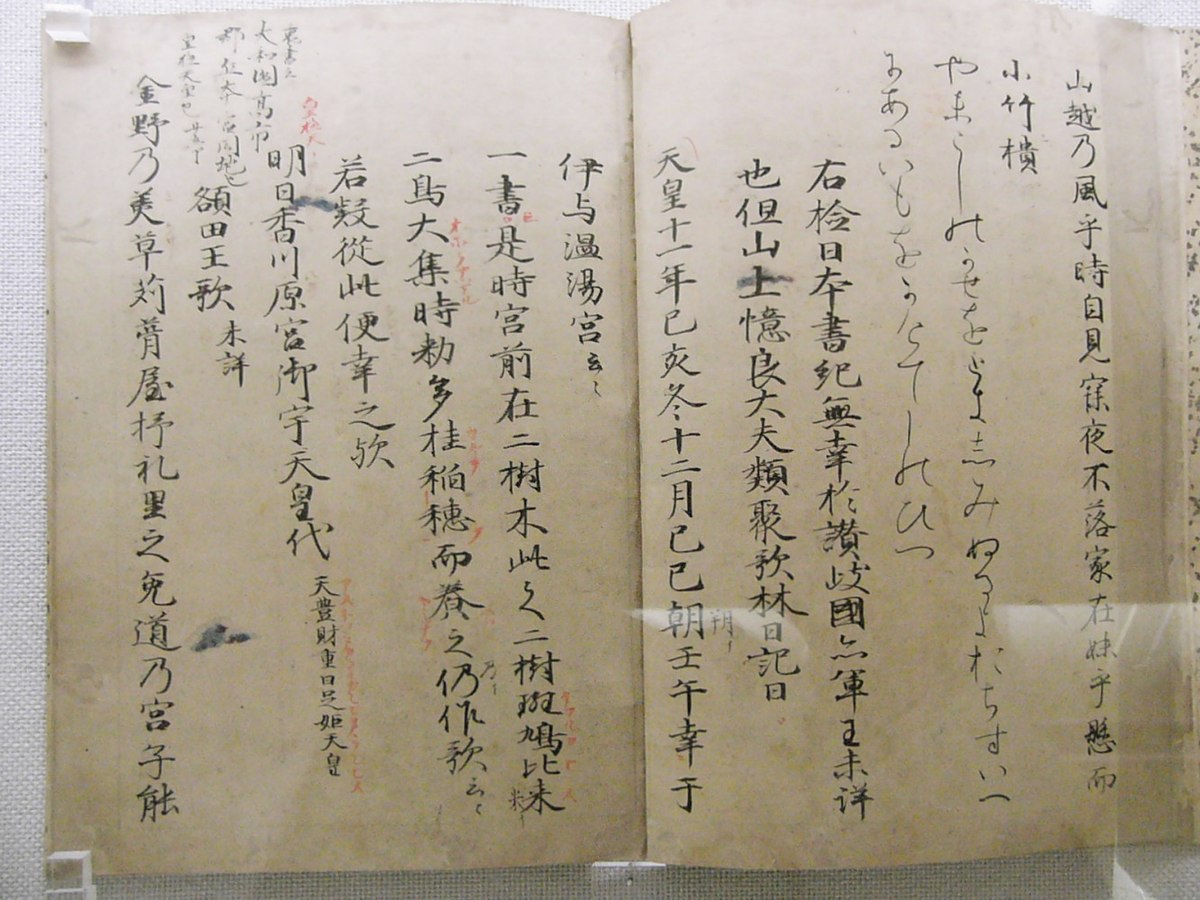 山越乃風乎時自見寐夜不落家在妹乎懸而
小竹樻
やまこしのかせをときしみぬるよおちすいへ
にあるいもをかけてしのひつ
右検日本書紀無幸於讃岐國亦軍王未詳
也但山上憶良大夫類聚歌林曰記曰
天皇十一年己亥冬十二月己巳朝壬午幸于
朔
伊与温湯宮云〻
一書是時宮前在二樹木此之二樹斑鳩比来
二鳥大集時勅多桂稲穂而養之仍作歌云〻
乃
米
若疑従此便幸之歟
明日香川原宮御宇天皇代 天豊財重日足姫天皇
皇極天
額田王歌 未詳
裏書云
大和國高市
金野乃美草苅葺屋杼礼里之兔道乃宮子能